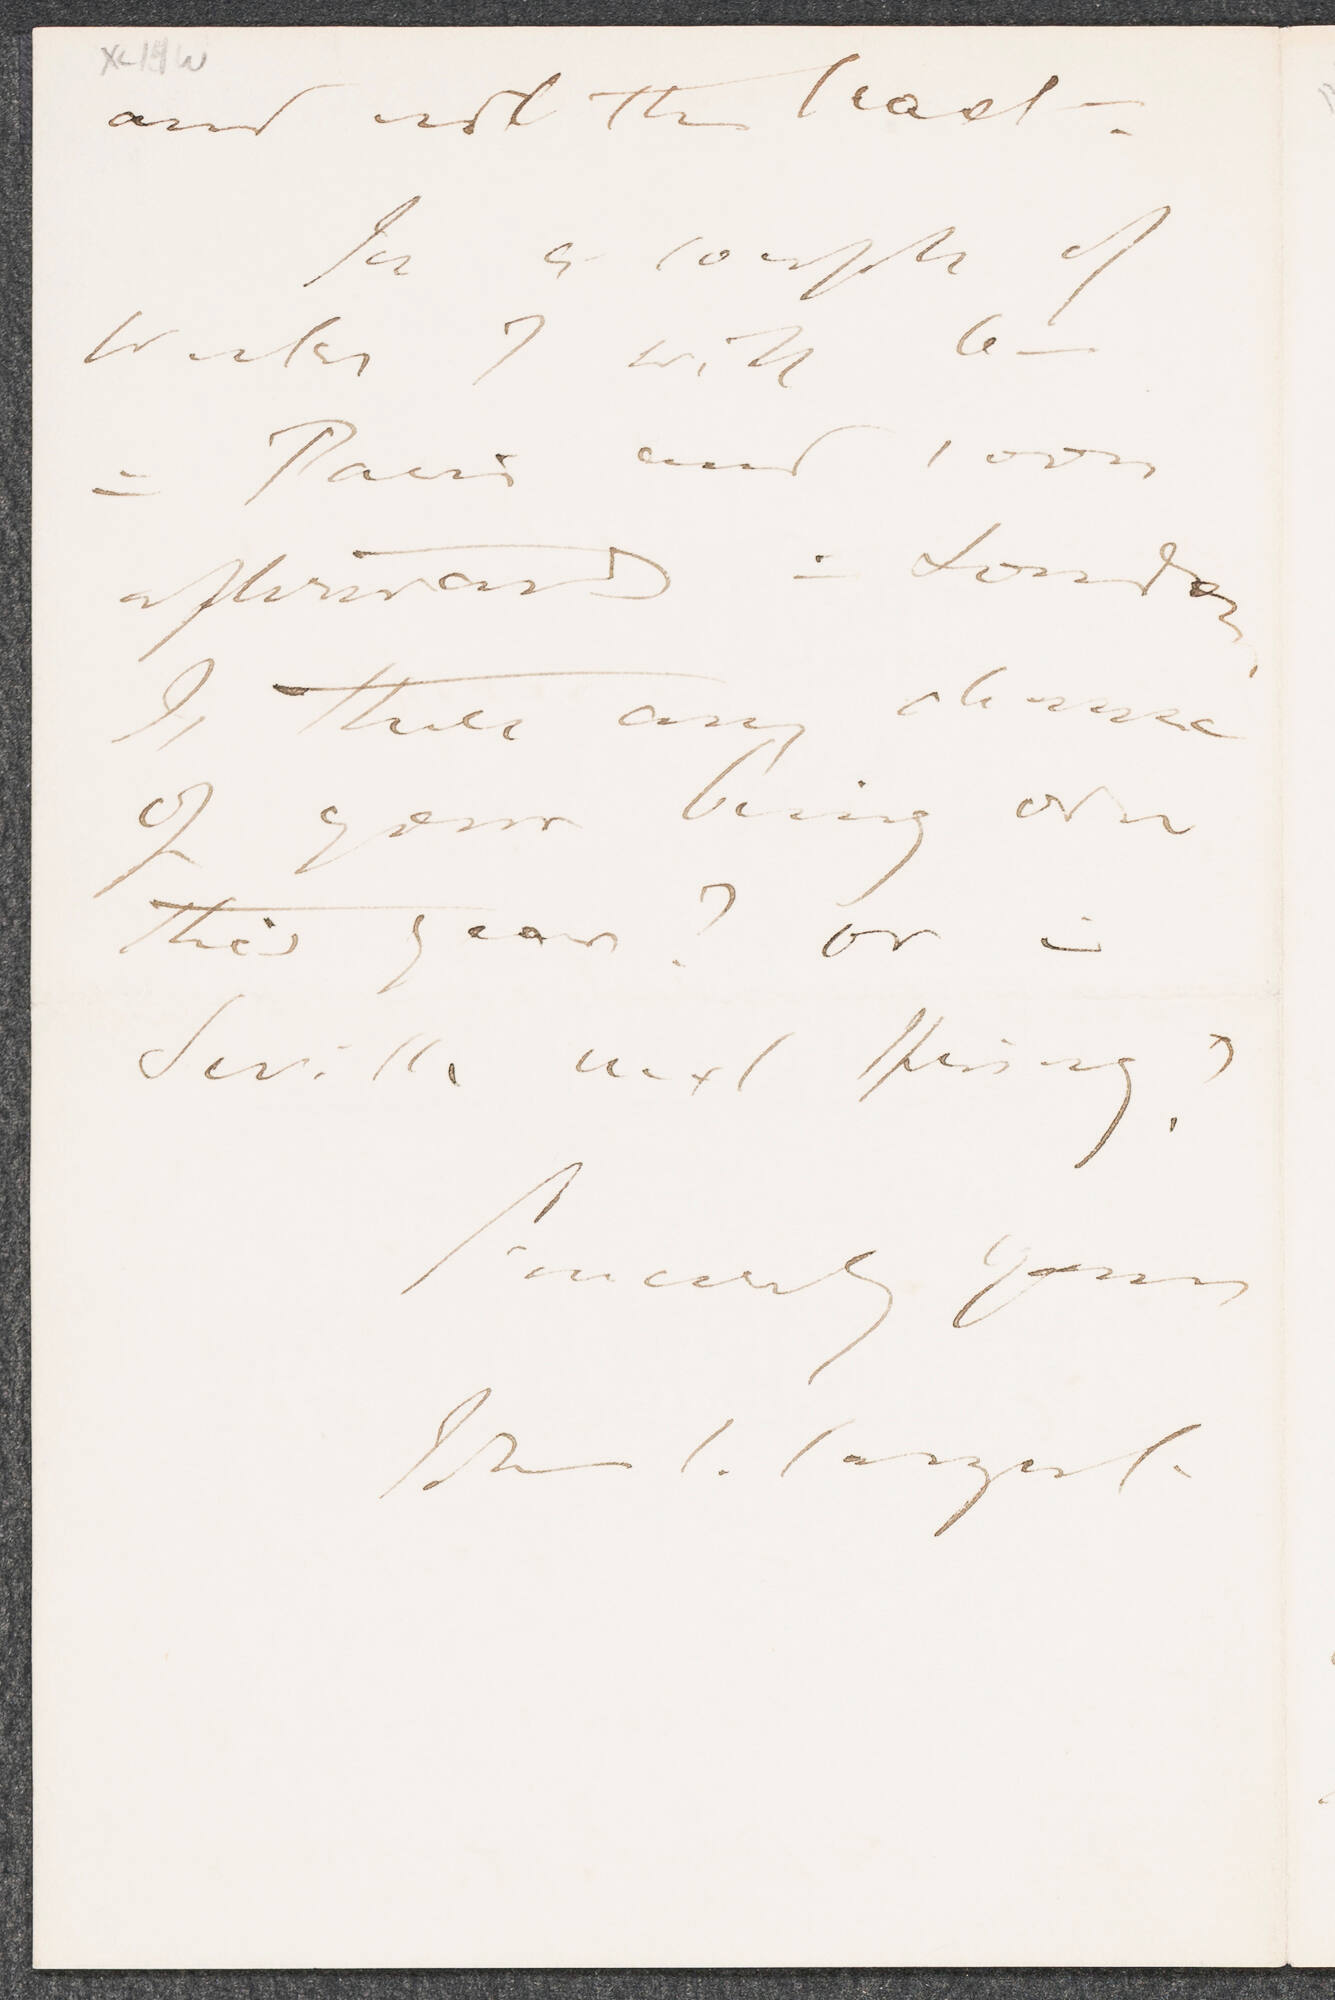 and not the least.
In a couple of
weeks I will be
in Paris and soon
afterwards in London,
Is there any chance
of your being over
this year? or in
Seville next Spring?
Sincerely yours
John S. Sargent.